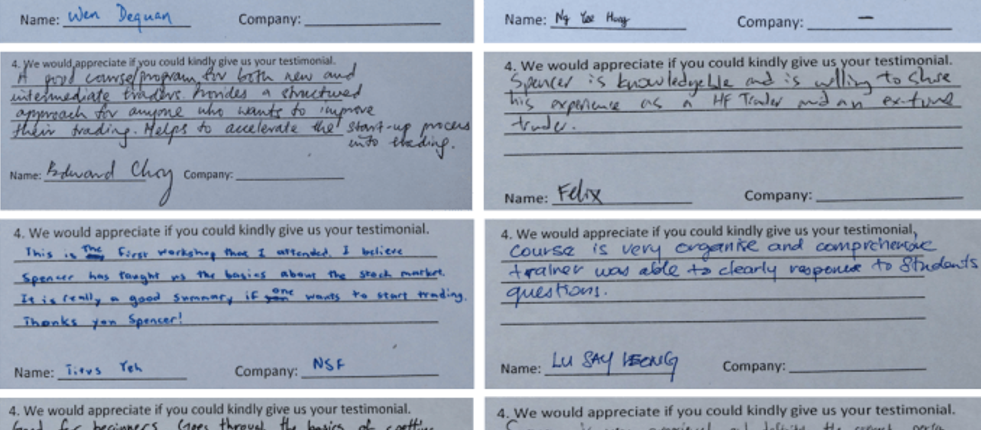 Name: Wen Dequan Company:
Name: Ng Yee Company: —
4. We would appreciate if you could kindly give us your testimonial.
A good course/program for both new and
intermediate traders. Provides a structured
approach for anyone who wants to improve
their trading. Helps to accelerate the start-up process
into trading.
Name: Edward Choy Company:
4. We would appreciate if you could kindly give us your testimonial.
Spencer is knowledgeable and is willing to share
his experience as a HF Trader and an ex-fund
trader.
Name: Felix Company:
4. We would appreciate if you could kindly give us your testimonial.
This is the first workshop that I attended. I believe
Spencer has taught us the basics about the stock market.
It is really a good summary if one wants to start trading.
Thanks yon Spencer!
Name: Titus Yeh Company: NSF
4. We would appreciate if you could kindly give us your testimonial,
course is very organise and comprehensive
trainer was able to clearly response to students
questions.
Name: LU SAY LEONG Company:
4. We would appreciate if you could kindly give us your testimonial.
Good for beginners Goes through the basics of
4. We would appreciate if you could kindly give us your testimonial.